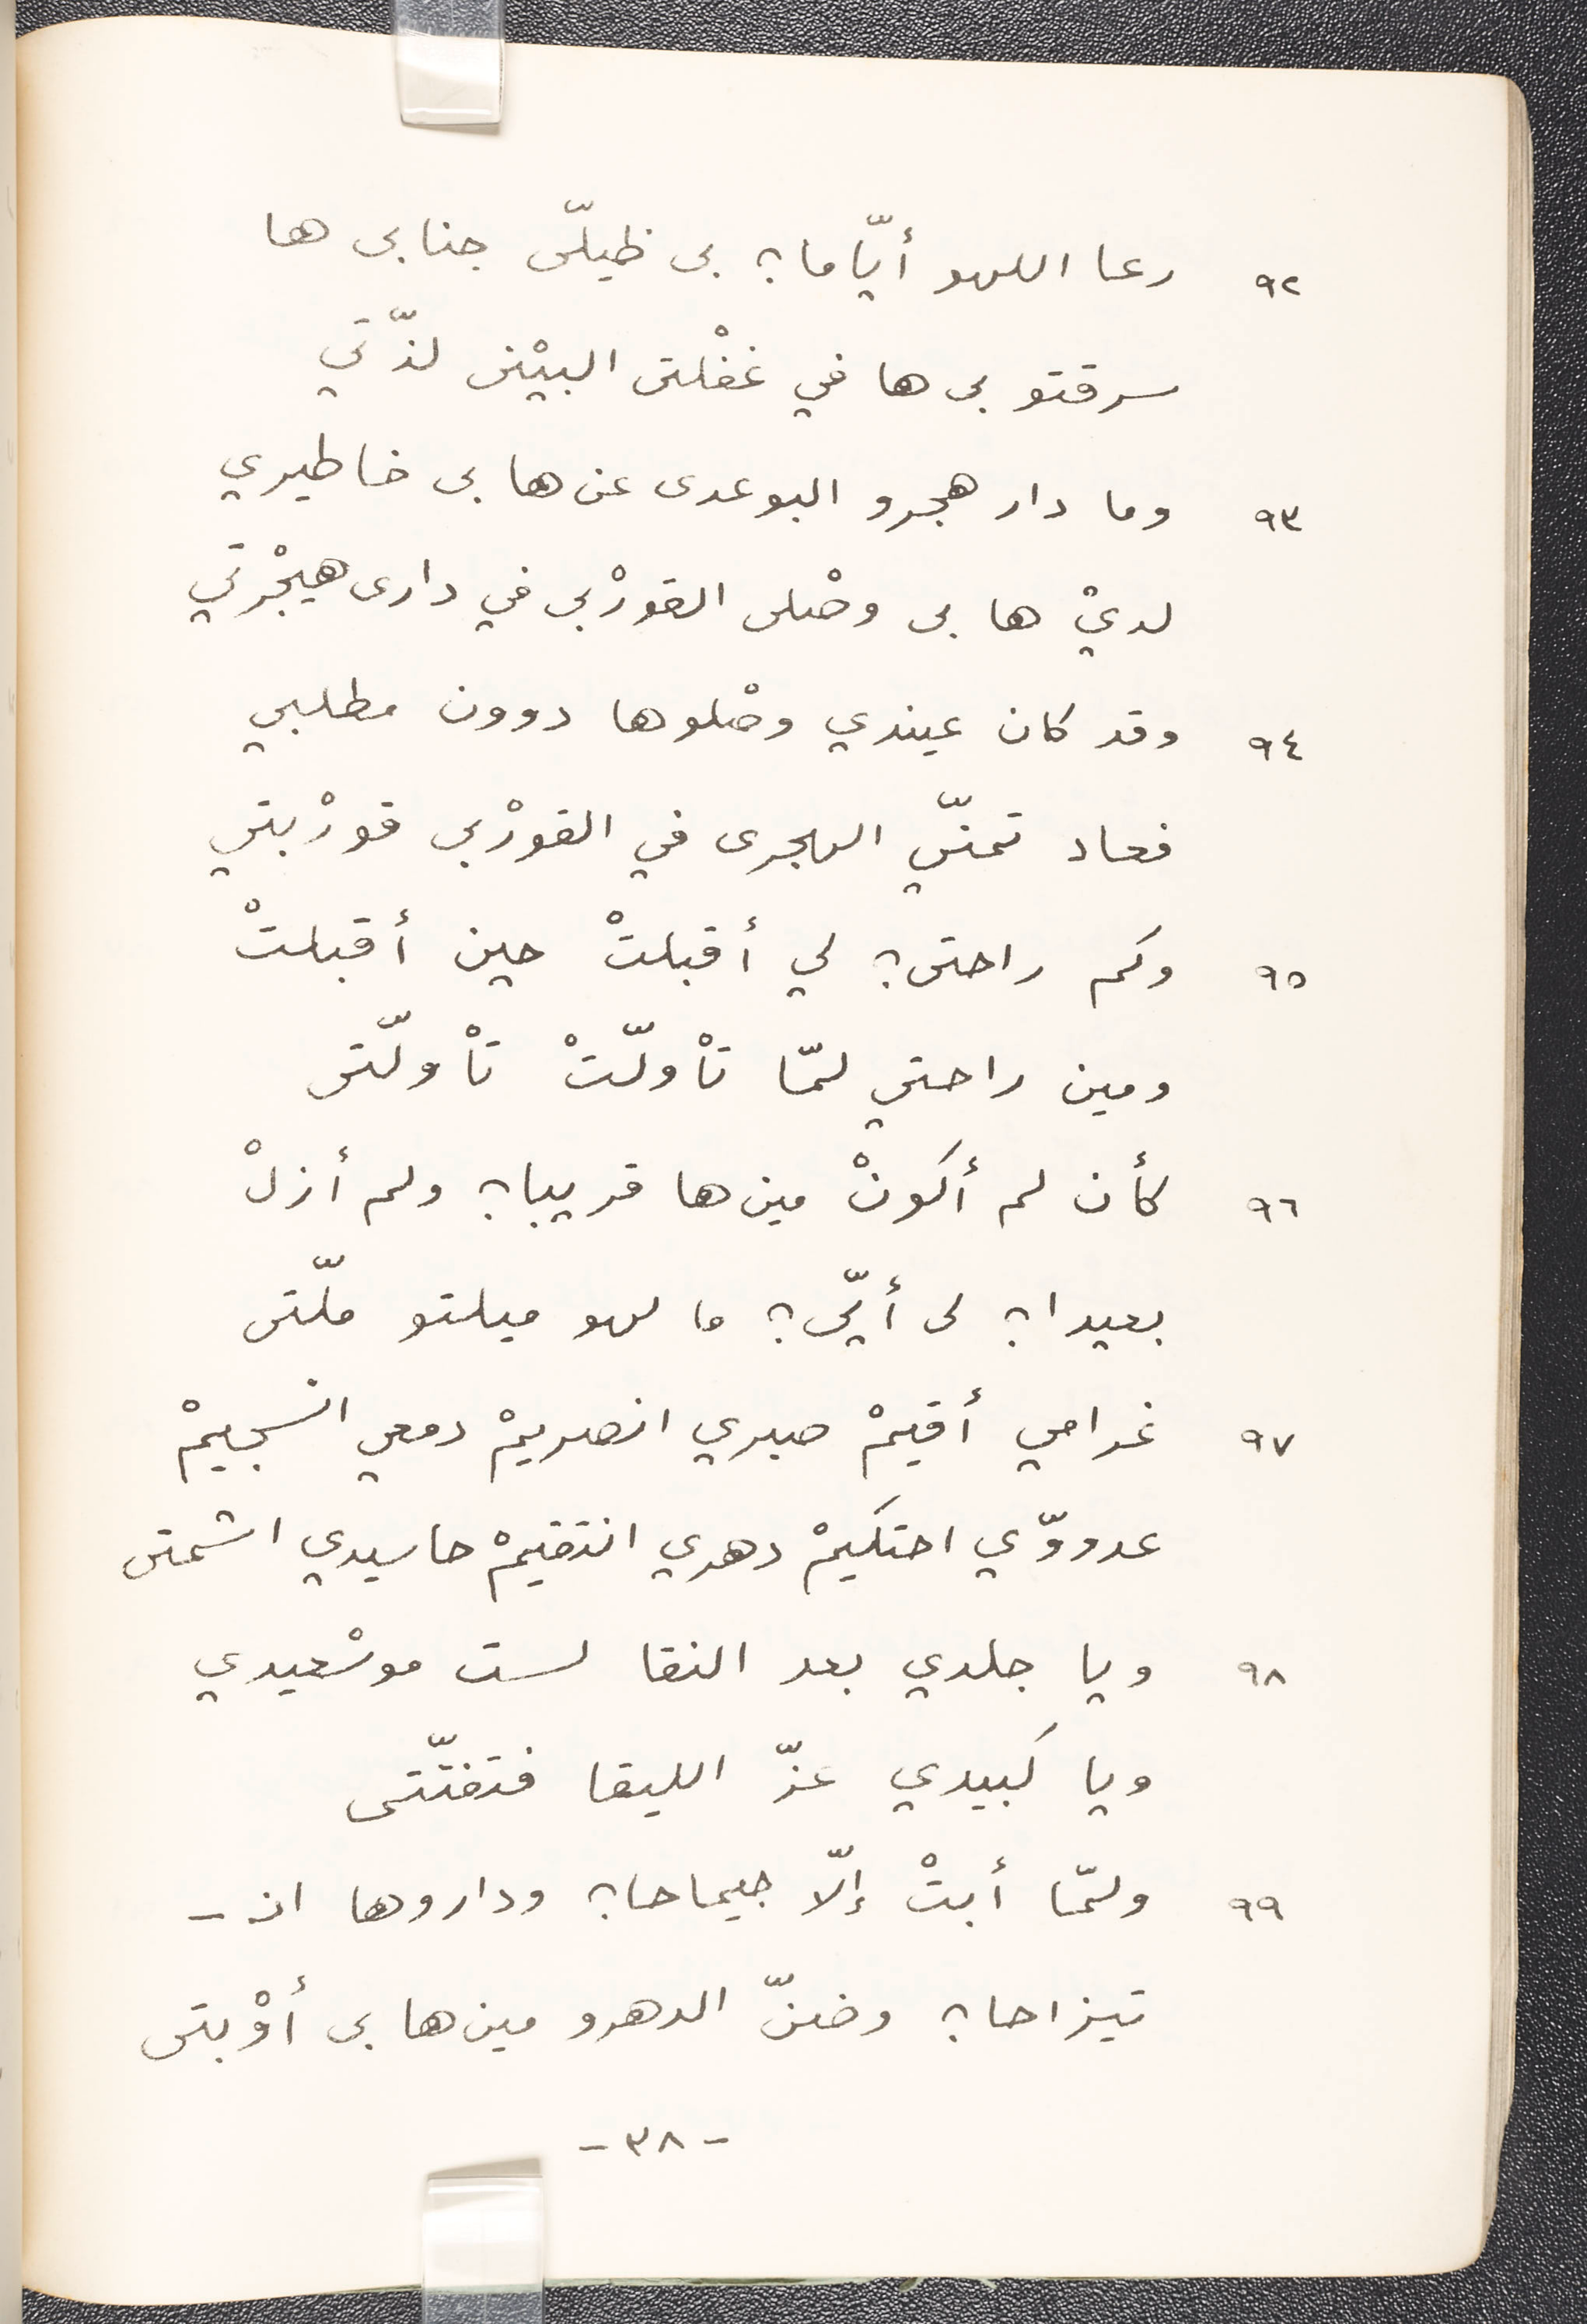 ٩٢ رعا اللهو أيّاما؟ بى ظيلّى جنابى ها
سرقتو بى ها في غفْلتى البيْنى لذّتي
٩٣ وما دار هجرو البوعدى عن ها بى خاطيري
لديْ ها بى وصْلى القورْبى في دارى هيجْرتي
٩٤ وقد كان عيندي وصْلوها دوون مطلبي
فعاد تمنّي الهجرى في القورْبى قورْبتي
٩٥ وكم راحتى؟ لي أقبلتْ حين أقبلتْ
ومين راحتي لمّا تاْولّتْ تاْولّتى
٩٦ كأن لم أكونْ مين ها قريبا؟ ولم أزلْ
بعيدا؟ لى أيّى؟ ما لهو ميلتو ملّتى
٩٧ غرامي أقيمْ صبري انصريمْ دمعي انْسجيمْ
عدووّي احتكيمْ دهري انتقيمْ حاسيدي اشمتى
٩٨ ويا جلدي بعد النقا لست موسْعيدي
ويا كبيدي عزّ الليقا فتفتّتى
٩٩ ولمّا أبتْ إلّا جيماحا؟ وداروها انـ -
تيزاحا؟ وضنّ الدهرو مين ها بى أوْبتى
- ٣٨ -